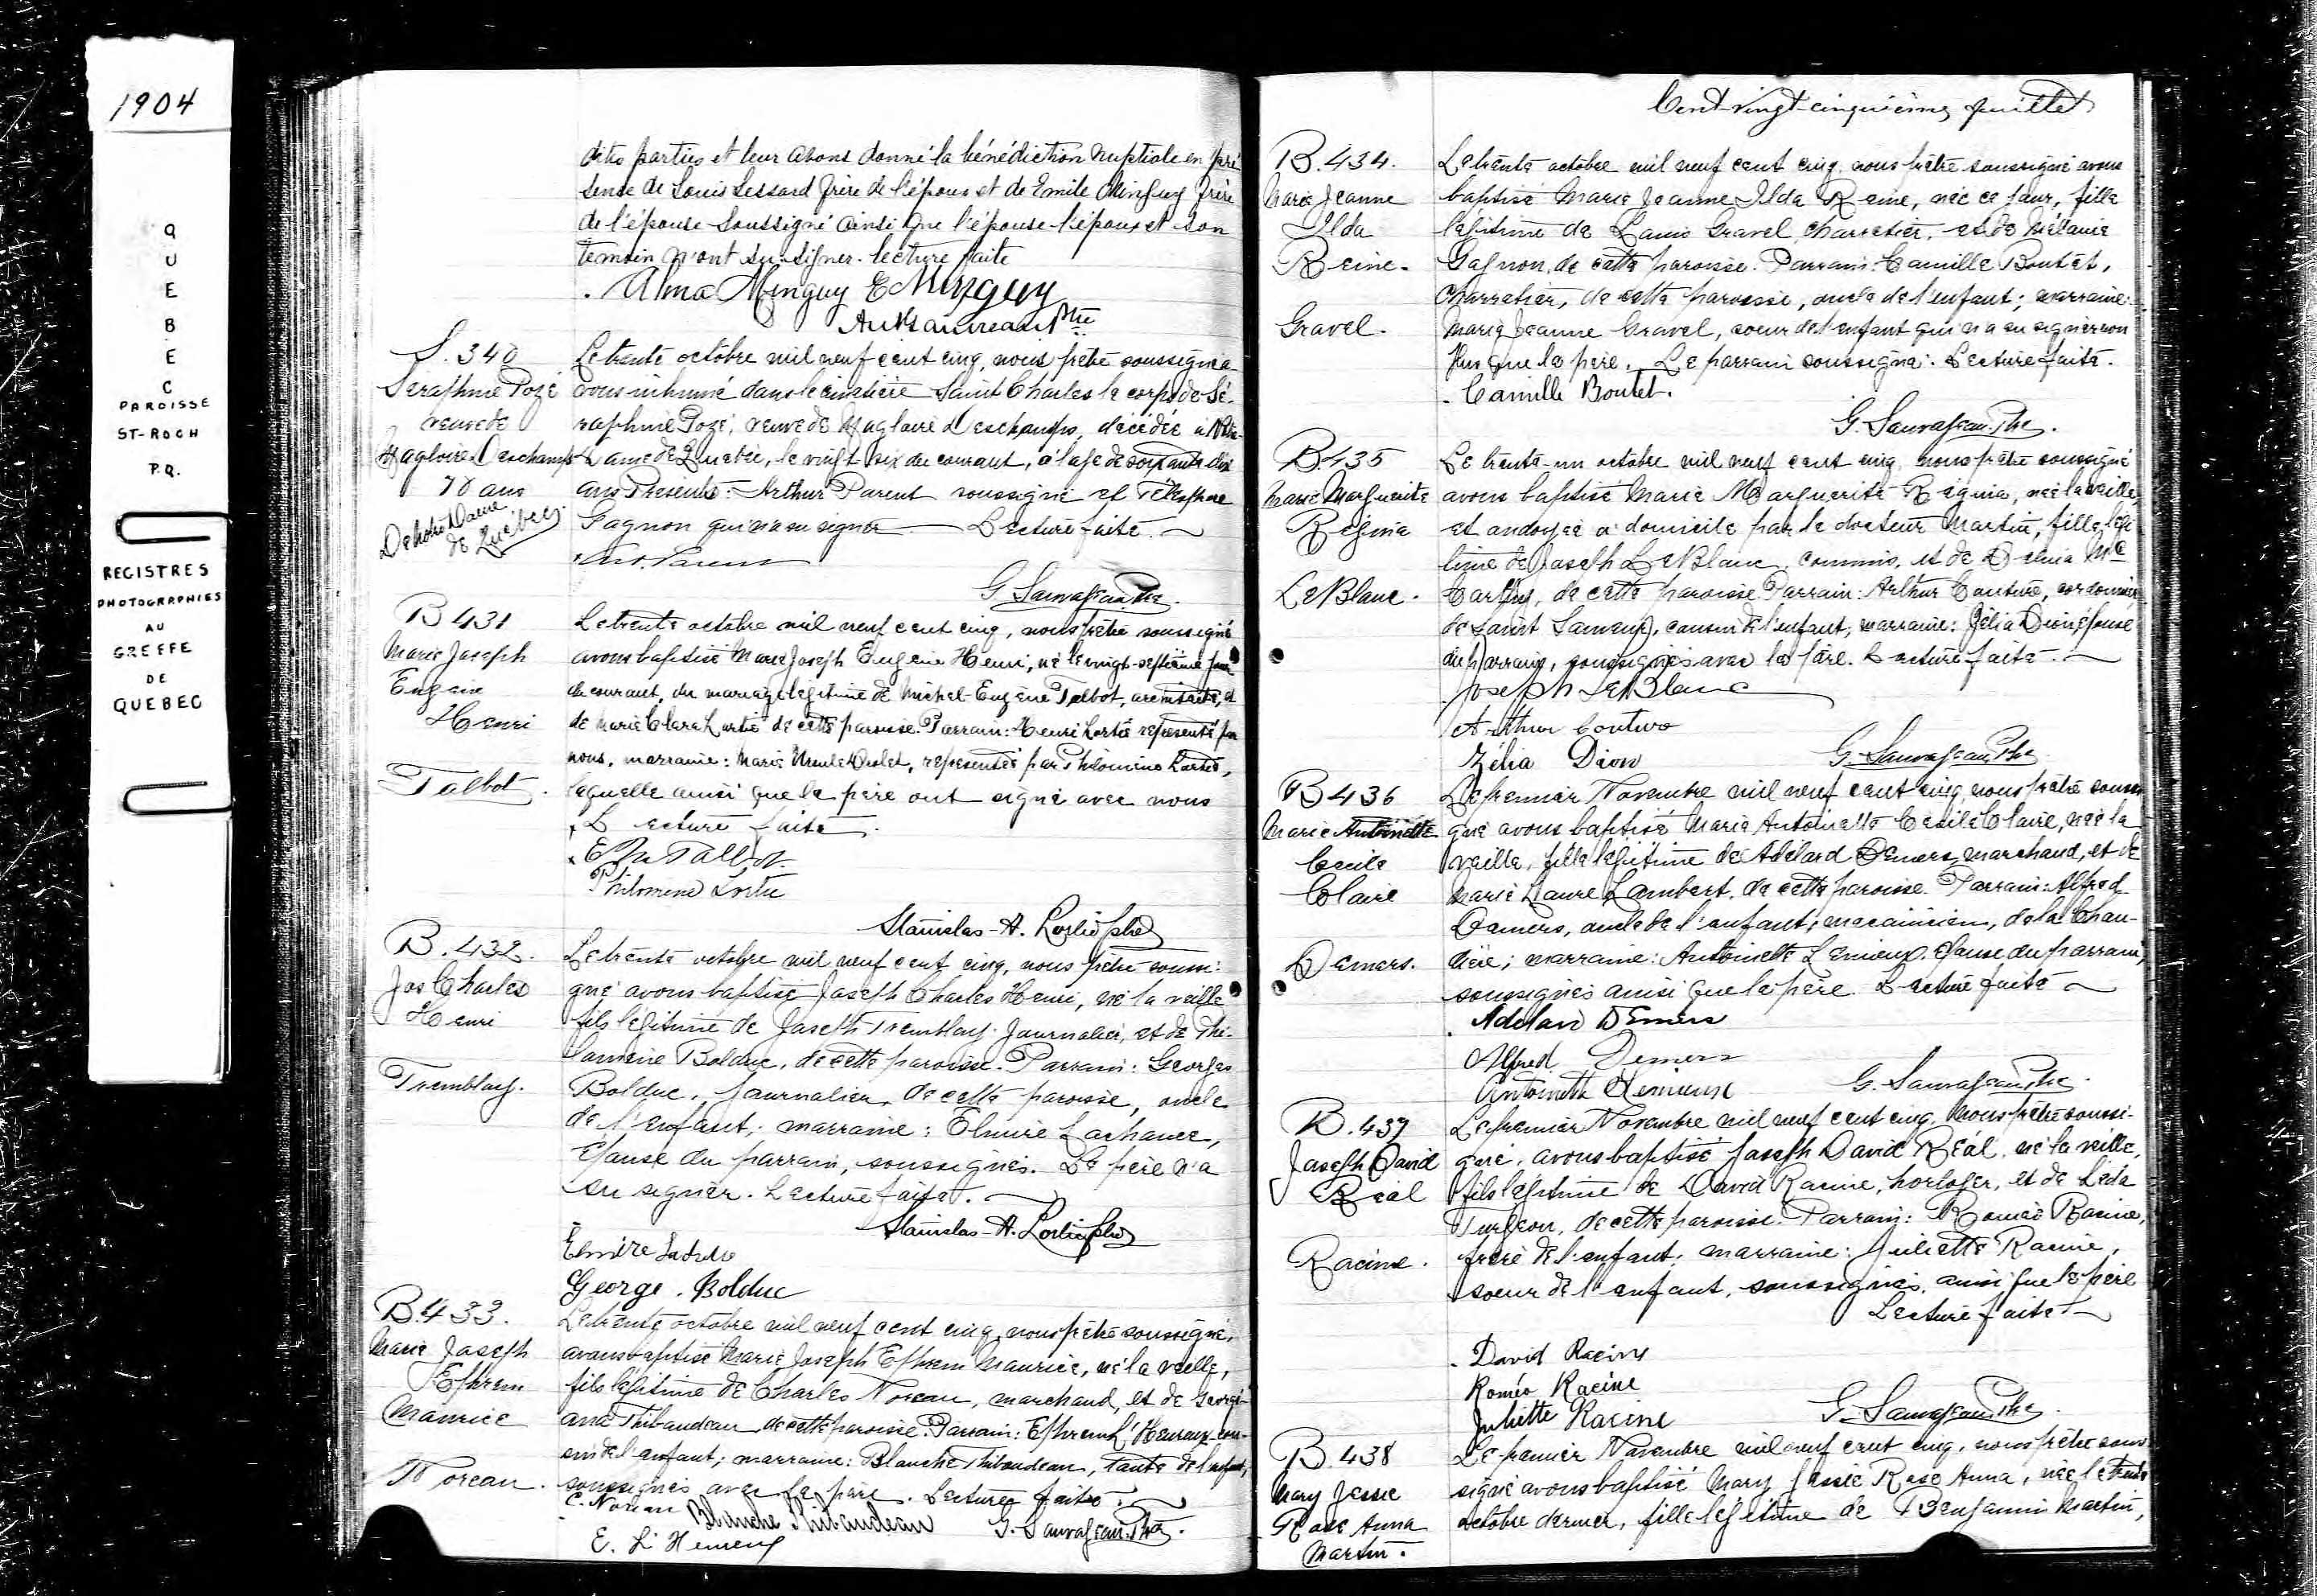 1904
QUEBEC
PAROISSE
ST-ROCH
P.Q.
REGISTRES
PHOTOGRAPHIES
AU
GREFFE
DE
QUEBEC
dites parties et leur avons donné la bénédiction nuptiale en pré
sence de Louis Lessard frère de l'époux et de Emile Minguy frère
de l'épouse soussigné ainsi que l'épouse l'époux et son
temoin n'ont su signer. lecture faite
Alma Minguy E Minguy
Ptre
S. 340
Seraphine Pozé
veuve de
Magloire Deschamps
70 ans
De Notre Dame
de Québec
Le trente octobre mil neuf cent cinq, nous prêtre soussigné a
vons inhumé dans le cimetière Saint Charles le corps de Sé-
raphine Pozé, veuve de Magloire Deschamps, décédée à Notre
Dame de Québec, le vingt six du courant, à l'age de soixante dix
ans Présents: Arthur Parent soussigné et Télesphore
Gagnon qui n'a su signer Lecture faite.
Art. Parent
G. Sauvageau Ptre.
B 431
Marie Joseph
Eugène
Henri
Talbot.
Le trente octobre mil neuf cent cinq, nous prêtre soussigné
avons baptisé Marie Joseph Eugène Henri, né le vingt-septième jour
du courant, du mariage légitime de Michel-Eugène Talbot, architecte, et
de Marie Clara Lortie de cette paroisse. Parrain: Henri Lortie representé par
nous, marraine: Marie Ursule Drolet, representée par Philomène Lortie,
laquelle ainsi que le père ont signé avec nous
Lecture faite.
E. M. Talbot
Philomene Lortie
Stanislas-A. Lortie ptre
B. 432.
Jos Charles
Henri
Tremblay.
Le trente octobre mil neuf cent cinq, nous prêtre soussi-
gné avons baptisé Joseph Charles Henri, né la veille
fils légitime de Joseph Tremblay Journalier, et de Phi-
lomène Bolduc, de cette paroisse. Parrain: Georges
Bolduc, journalier, de cette paroisse, oncle
de l'enfant; marraine: Elmire Lachance,
épouse du parrain, soussignés. Le père n'a
su signer. Lecture faite.
Stanislas-A. Lortie ptre
Elmire
George Bolduc
B. 433.
Marie Joseph
Ephrem
Maurice
Noreau.
Le trente octobre mil neuf cent cinq, nous prêtre soussigné,
avons baptisé Marie Joseph Ephrem Maurice, né la veille,
fils légitime de Charles Noreau, marchand, et de Georgi-
ana Thibaudeau de cette paroisse. Parrain: Ephrem L'Heureux cou-
sin de l'enfant; marraine: Blanche Thibaudeau, tante de l'enfant,
soussignés avec le père. Lecture faite.
C. Noreau Blanche Thibaudeau G. Sauvageau Ptre.
E. L'Heureux
Cent-vingt-cinquième feuillet
B. 434.
Marie Jeanne
Ilda
Reine.
Gravel.
Le trente octobre mil neuf cent cinq, nous prêtre soussigné avons
baptisé Marie Jeanne Ilda Reine, née ce jour, fille
légitime de Louis Gravel, charretier, et de Mélanie
Gagnon, de cette paroisse. Parrain: Camille Boutet,
charretier, de cette paroisse, oncle de l'enfant; marraine:
Marie Jeanne Gravel, soeur de l'enfant qui n'a su signer non
plus que le père. Le parrain soussigné. Lecture faite.
Camille Boutet.
G. Sauvageau Ptre.
B 435
Marie Marguerite
Régina
LeBlanc.
Le trente-un octobre mil neuf cent cinq nous prêtre soussigné
avons baptisé Marie Marguerite Régina, née la veille,
et ondoyée à domicile par le docteur Martin, fille légi
time de Joseph LeBlanc, commis, et de Mc
Carthy, de cette paroisse Parrain: Arthur Couture, cordonnier,
de Saint Sauveur, cousin de l'enfant, marraine: Zélia Dion épouse
du parrain, soussignés avec le père. Lecture faite.
Joseph LeBlanc
Arthur Couture
Zélia Dion
G. Sauvageau Ptre
B 436
Marie Antoinette
Cecile
Claire
Demers.
Le premier Novembre mil neuf cent cinq nous prêtre soussi
gné avons baptisé Marie Antoinette Cecile Claire, née la
veille, fille légitime de Adélard Demers, marchand, et de
Marie Laure Lambert, de cette paroisse. Parrain: Alfred
Demers, oncle de l'enfant, mecanicien, de la Chau-
dière; marraine: Antoinette Lemieux, épouse du parrain,
soussignés ainsi que le père. Lecture faite
Adelard Demers
Alfred Demers
Antoinette Lemieux
G. Sauvageau Ptre.
B. 437
Joseph David
Réal
Racine.
Le premier Novembre mil neuf cent cinq, nous prêtre soussi-
gné, avons baptisé Joseph David Réal, né la veille,
fils légitime de David Racine, horloger, et de Léda
Turgeon, de cette paroisse. Parrain: Roméo Racine,
frère de l'enfant; marraine: Juliette Racine,
soeur de l'enfant, soussignés, ainsi que le père
Lecture faite
David Racine
Roméo Racine
Juliette Racine
G. Sauvageau Ptre.
B. 438
Mary Jessie
Rose Anna
Martin.
Le premier Novembre mil neuf cent cinq, nous prêtre sous
signé avons baptisé Mary Jessie Rose Anna, née le trente
octobre dernier, fille légitime de Benjamin Martin,